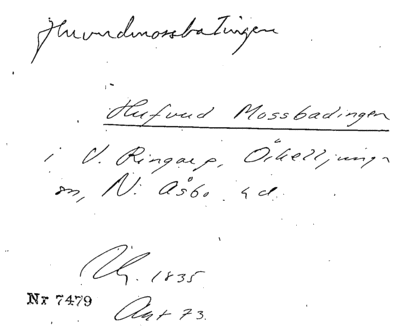 Huvudmossbadingen
Hufvud Mossbadingen
i V. Ringarp, Örkelljunga
sn, N. Åsbo hd.
1835
Nr 7479
Akt 73.